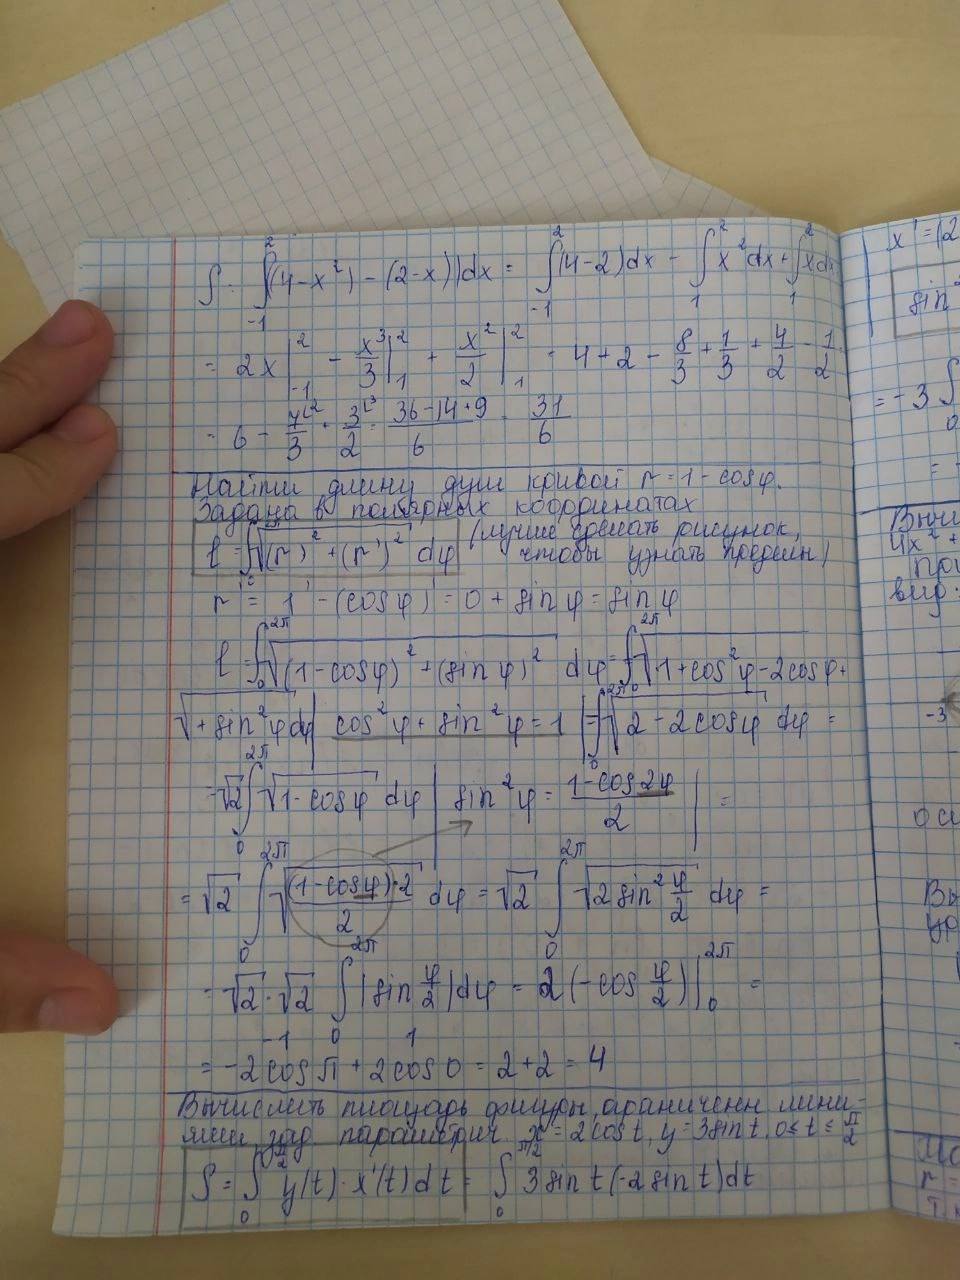 S = ∫₋₁² ((4-x²) - (2-x))dx = ∫₋₁² (4-2)dx - ∫₁² x²dx + ∫₁² xdx
= 2x|₋₁² - x³/3|₁² + x²/2|₁² = 4+2 - 8/3 + 1/3 + 4/2 - 1/2 =
= 6 - 7/3 + 3/2 = (36-14+9)/6 = 31/6
Найти длину дуги кривой r = 1 - cosφ.
Задана в полярных координатах
l = ∫₀ √((r)² + (r')²) dφ (лучше сделать рисунок,
чтобы узнать пределы)
r' = 1' - (cosφ)' = 0 + sinφ = sinφ
l = ∫₀^2π √((1-cosφ)² + (sinφ)²) dφ = ∫₀^2π √(1+cos²φ-2cosφ+
√(+sin²φ dφ | cos²φ + sin²φ = 1 | = ∫₀^2π √(2-2cosφ) dφ =
= √2 ∫₀^2π √(1-cosφ) dφ | sin²φ = (1-cos2φ)/2 | =
= √2 ∫₀^2π √((1-cosφ)·2/2) dφ = √2 ∫₀^2π √(2sin² φ/2) dφ =
= √2·√2 ∫₀^2π |sin φ/2| dφ = 2(-cos φ/2)|₀^2π =
-1 1
= -2cosπ + 2cos0 = 2+2 = 4
Вычислить площадь фигуры, ограниченн. лини-
ями, зад. параметрич. x = 2cost, y = 3sint, 0 ≤ t ≤ π/2
S = ∫₀^π/2 y(t)·x'(t)dt = ∫₀^π/2 3sint(-2sint)dt
x' = (2
sin²
= -3 ∫
0
=
4x² +
вид:
-3